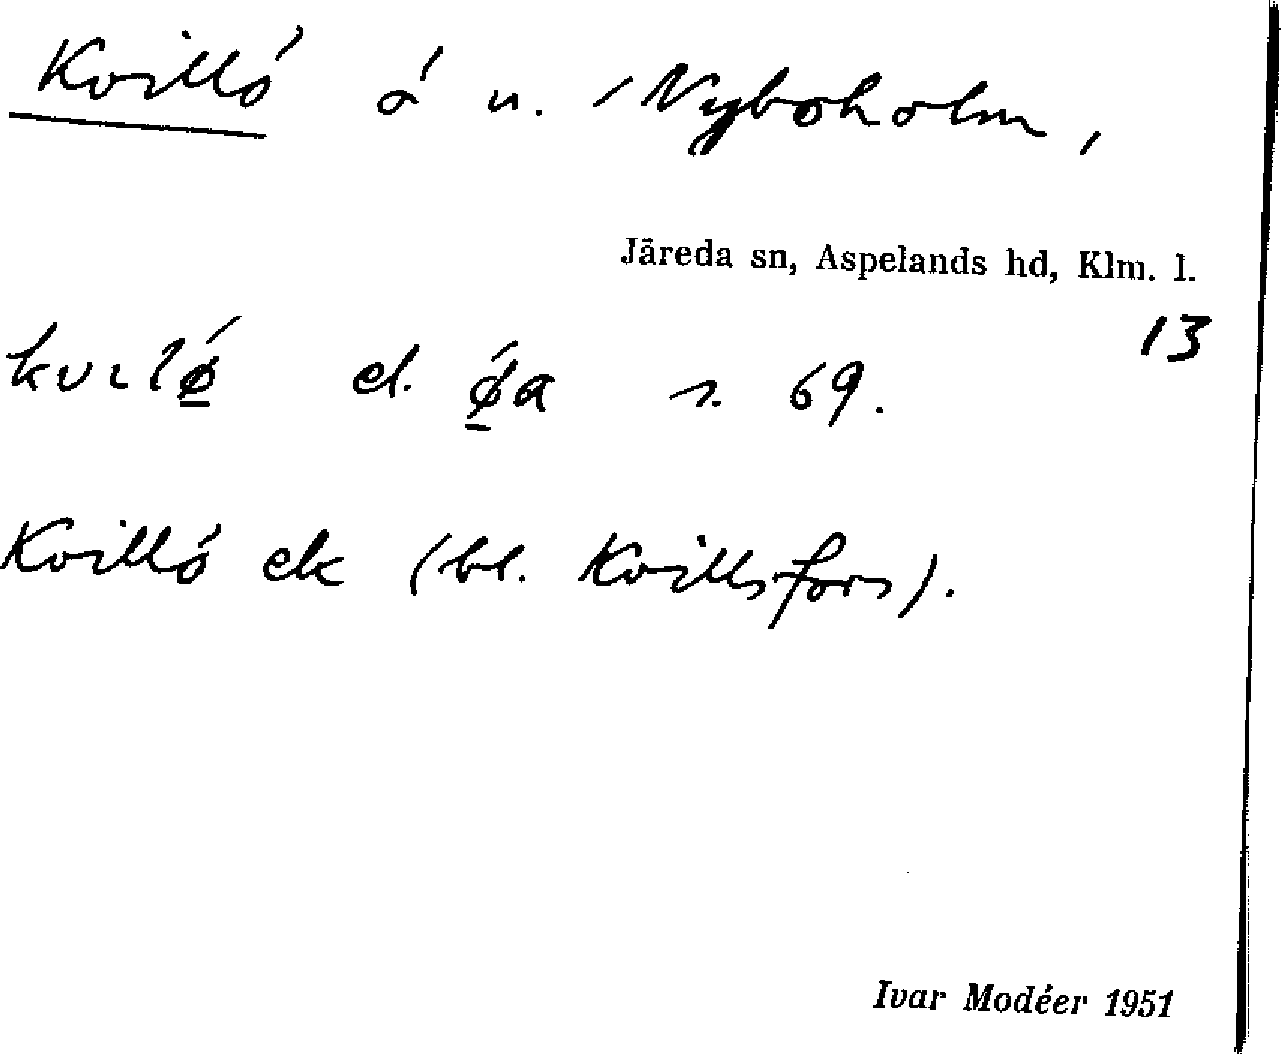 Kvillö å n. /Nyboholm,
Järeda sn, Aspelands hd, Klm. l.
13
kvɩlø̲ el. ø̲a s. 69.
Kvillö ek (bl. Kvillsfors).
Ivar Modéer 1951